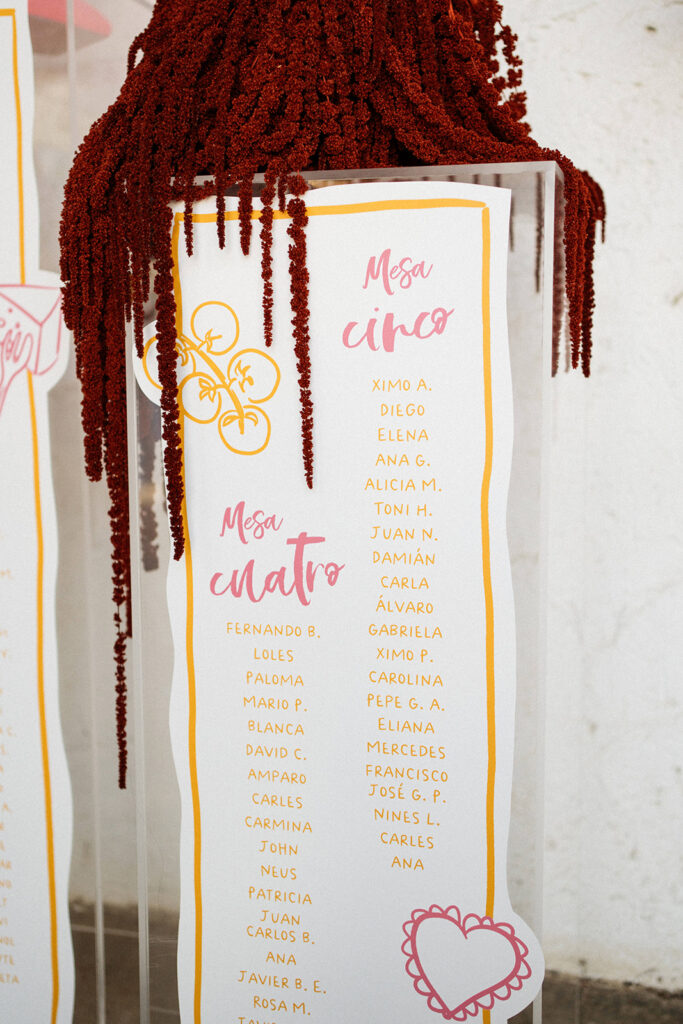 Mesa
cinco
XIMO A.
DIEGO
ELENA
ANA G.
ALICIA M.
TONI H.
JUAN N.
DAMIÁN
CARLA
ÁLVARO
GABRIELA
XIMO P.
CAROLINA
PEPE G. A.
ELIANA
MERCEDES
FRANCISCO
JOSÉ G. P.
NINES L.
CARLES
ANA
Mesa
cuatro
FERNANDO B.
LOLES
PALOMA
MARIO P.
BLANCA
DAVID C.
AMPARO
CARLES
CARMINA
JOHN
NEUS
PATRICIA
JUAN
CARLOS B.
ANA
JAVIER B. E.
ROSA M.